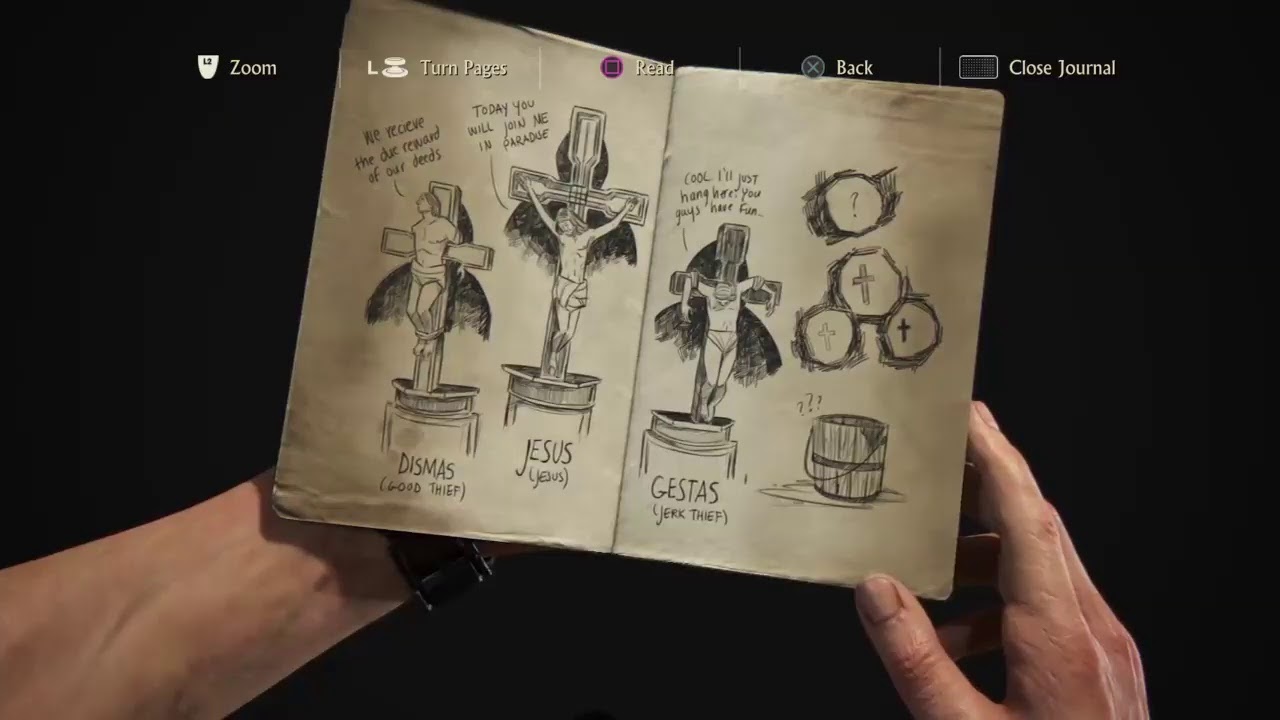 L2
Zoom
L
Turn Pages
Read
Back
Close Journal
We recieve
the due reward
of our deeds
TODAY YOU
WILL JOIN ME
IN PARADISE
COOL I'll JUST
hang here. You
guys have fun..
?
DISMAS
(GOOD THIEF)
JESUS
(JESUS)
GESTAS
(JERK THIEF)
???